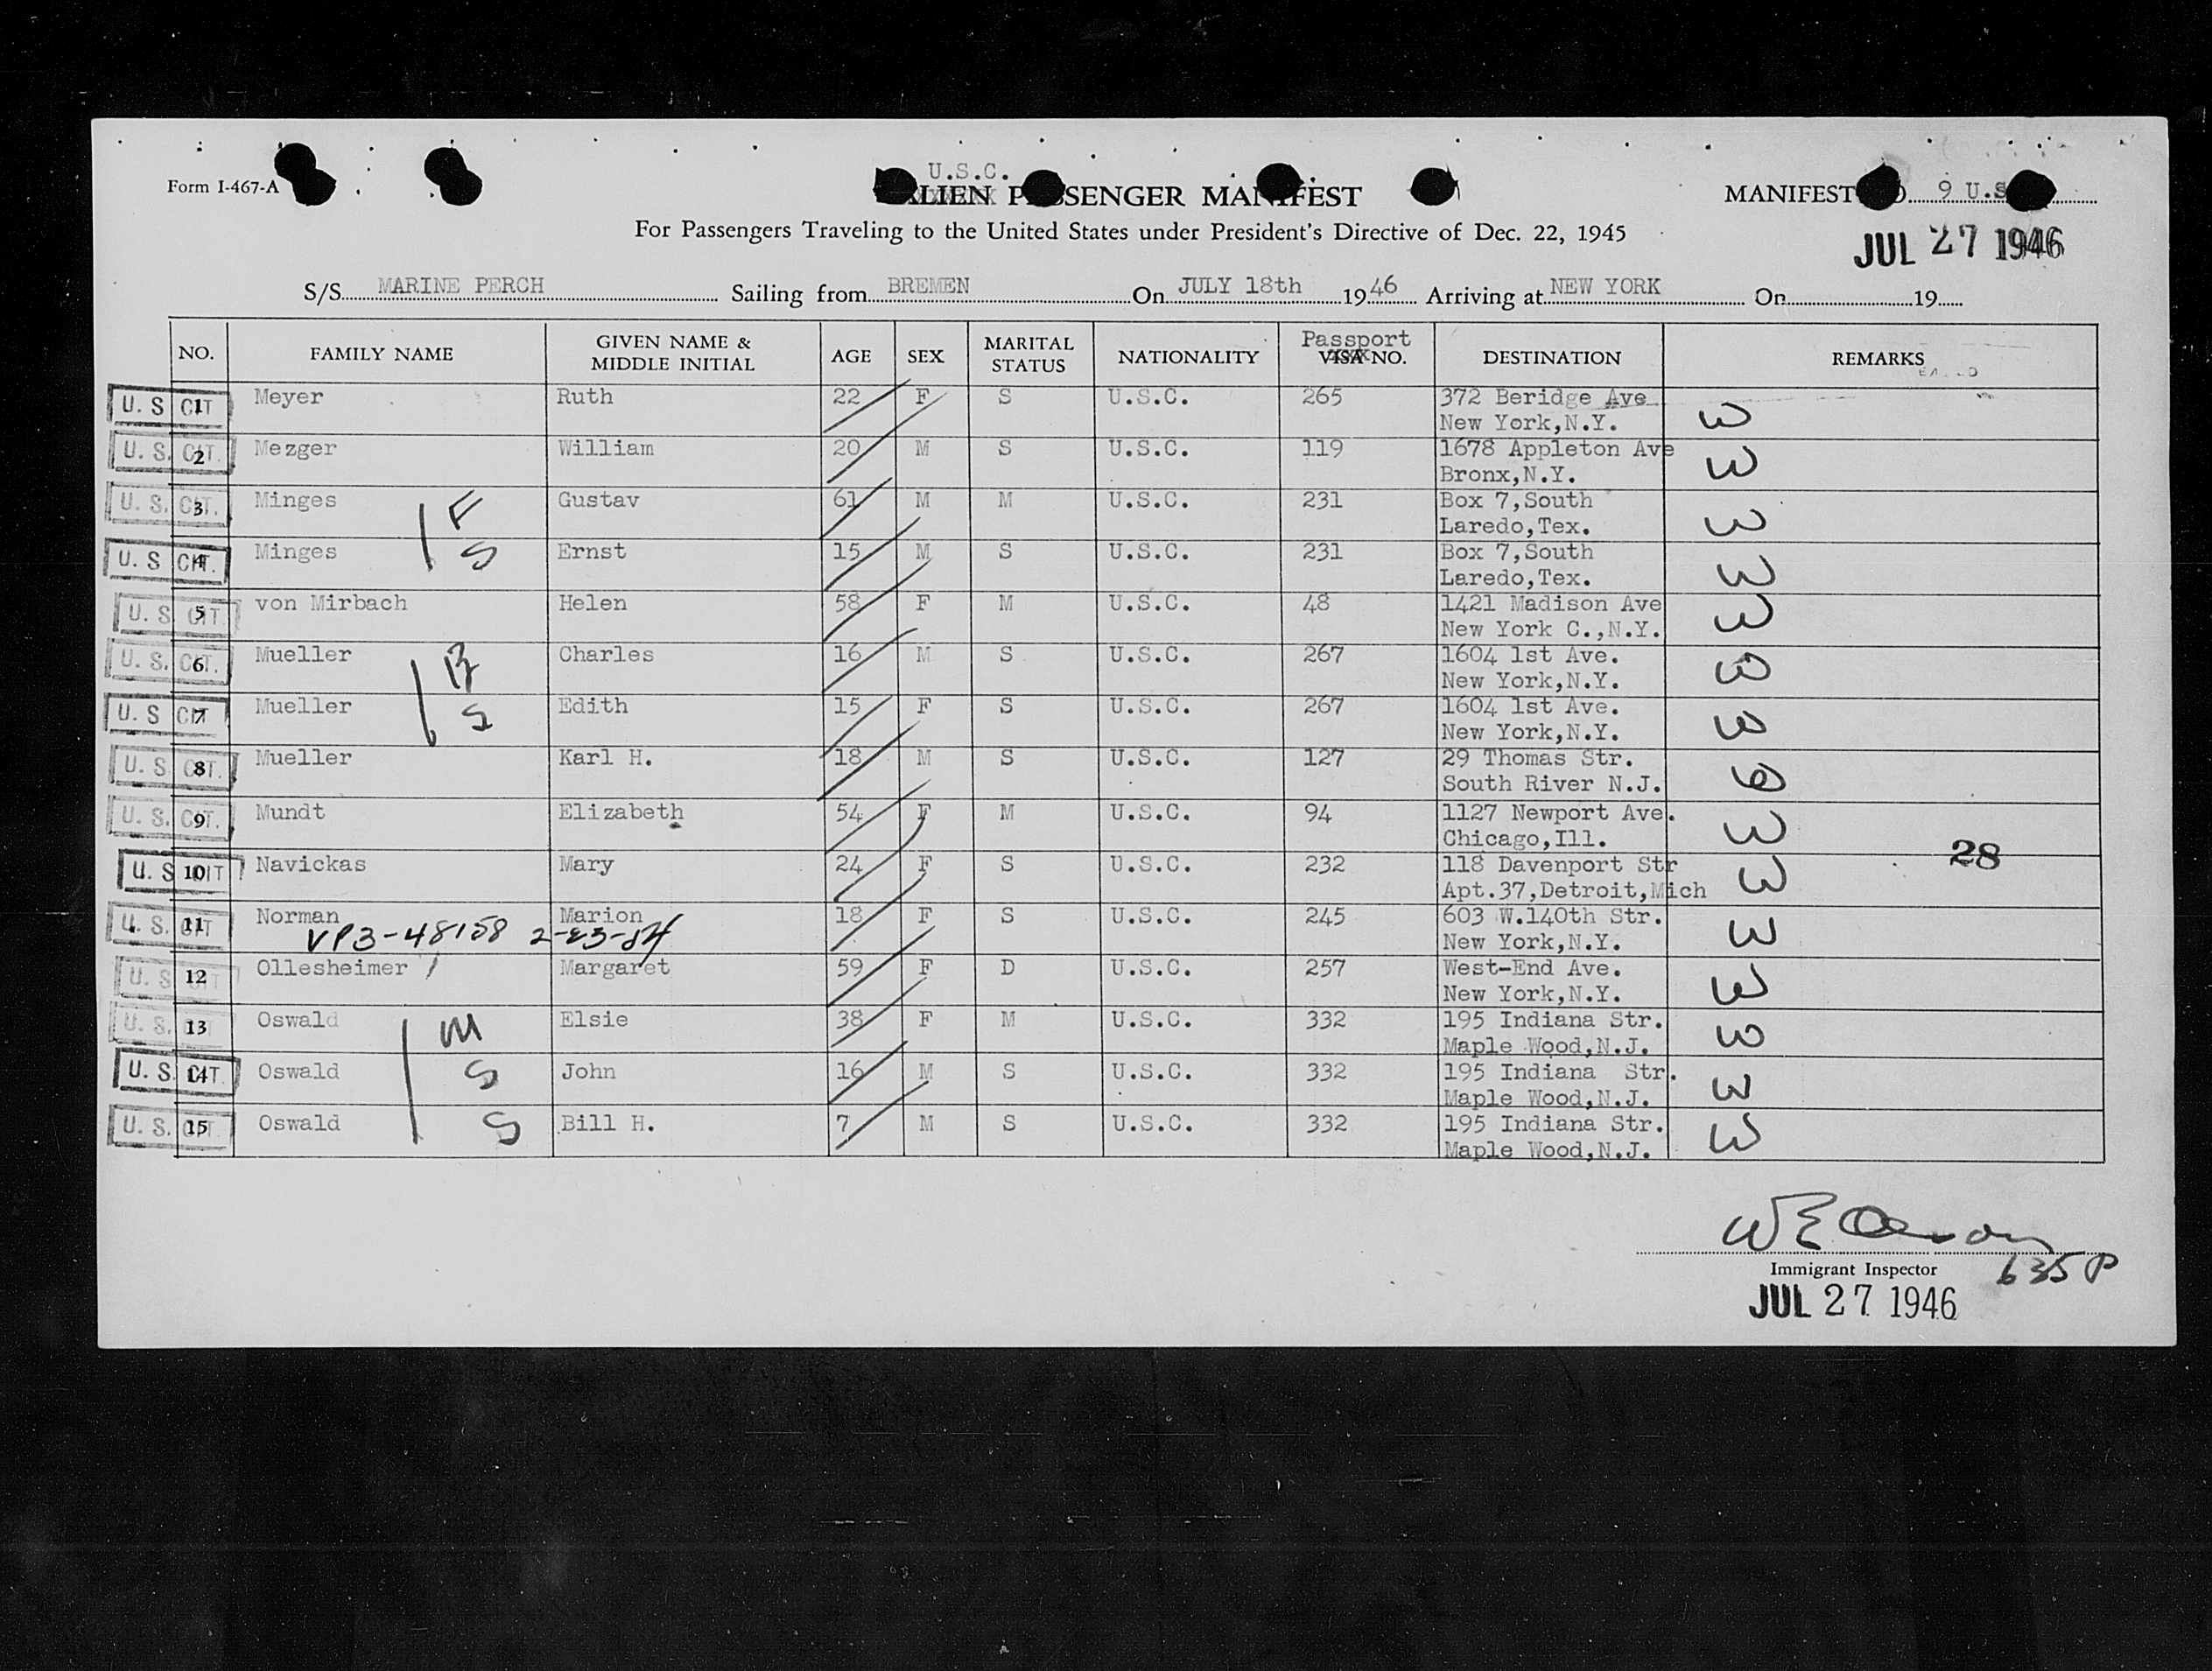 U.S.C.
Form I-467-A ALIEN PASSENGER MANIFEST MANIFEST 9 U.S
For Passengers Traveling to the United States under President's Directive of Dec. 22, 1945
JUL 27 1946
S/S MARINE PERCH Sailing from BREMEN On JULY 18th 1946 Arriving at NEW YORK On 19
NO. FAMILY NAME GIVEN NAME & MIDDLE INITIAL AGE SEX MARITAL STATUS NATIONALITY Passport VISA NO. DESTINATION REMARKS
U. S CIT 1 Meyer Ruth 22 F S U.S.C. 265 372 Beridge Ave
New York,N.Y.
U. S. CIT. 2 Mezger William 20 M S U.S.C. 119 1678 Appleton Ave
Bronx,N.Y.
U. S. CIT. 3 Minges F Gustav 61 M M U.S.C. 231 Box 7,South
Laredo,Tex.
U. S CIT. 4 Minges S Ernst 15 M S U.S.C. 231 Box 7,South
Laredo,Tex.
U. S CIT 5 von Mirbach Helen 58 F M U.S.C. 48 1421 Madison Ave
New York C.,N.Y.
U. S. CIT. 6 Mueller B Charles 16 M S U.S.C. 267 1604 1st Ave.
New York,N.Y.
U. S CIT 7 Mueller S Edith 15 F S U.S.C. 267 1604 1st Ave.
New York,N.Y.
U. S CIT. 8 Mueller Karl H. 18 M S U.S.C. 127 29 Thomas Str.
South River N.J.
U. S. CIT. 9 Mundt Elizabeth 54 F M U.S.C. 94 1127 Newport Ave.
Chicago,Ill.
28
U. S CIT 10 Navickas Mary 24 F S U.S.C. 232 118 Davenport Str
Apt.37,Detroit,Mich
U. S. CIT 11 Norman Marion 18 F S U.S.C. 245 603 W.140th Str.
VP3-48158 New York,N.Y.
U. S CIT 12 Ollesheimer Margaret 59 F D U.S.C. 257 West-End Ave.
New York,N.Y.
U. S. CIT 13 Oswald M Elsie 38 F M U.S.C. 332 195 Indiana Str.
Maple Wood,N.J.
U. S CIT 14 Oswald S John 16 M S U.S.C. 332 195 Indiana Str.
Maple Wood,N.J.
U. S. CIT 15 Oswald S Bill H. 7 M S U.S.C. 332 195 Indiana Str.
Maple Wood,N.J.
Immigrant Inspector 635 P
JUL 27 1946